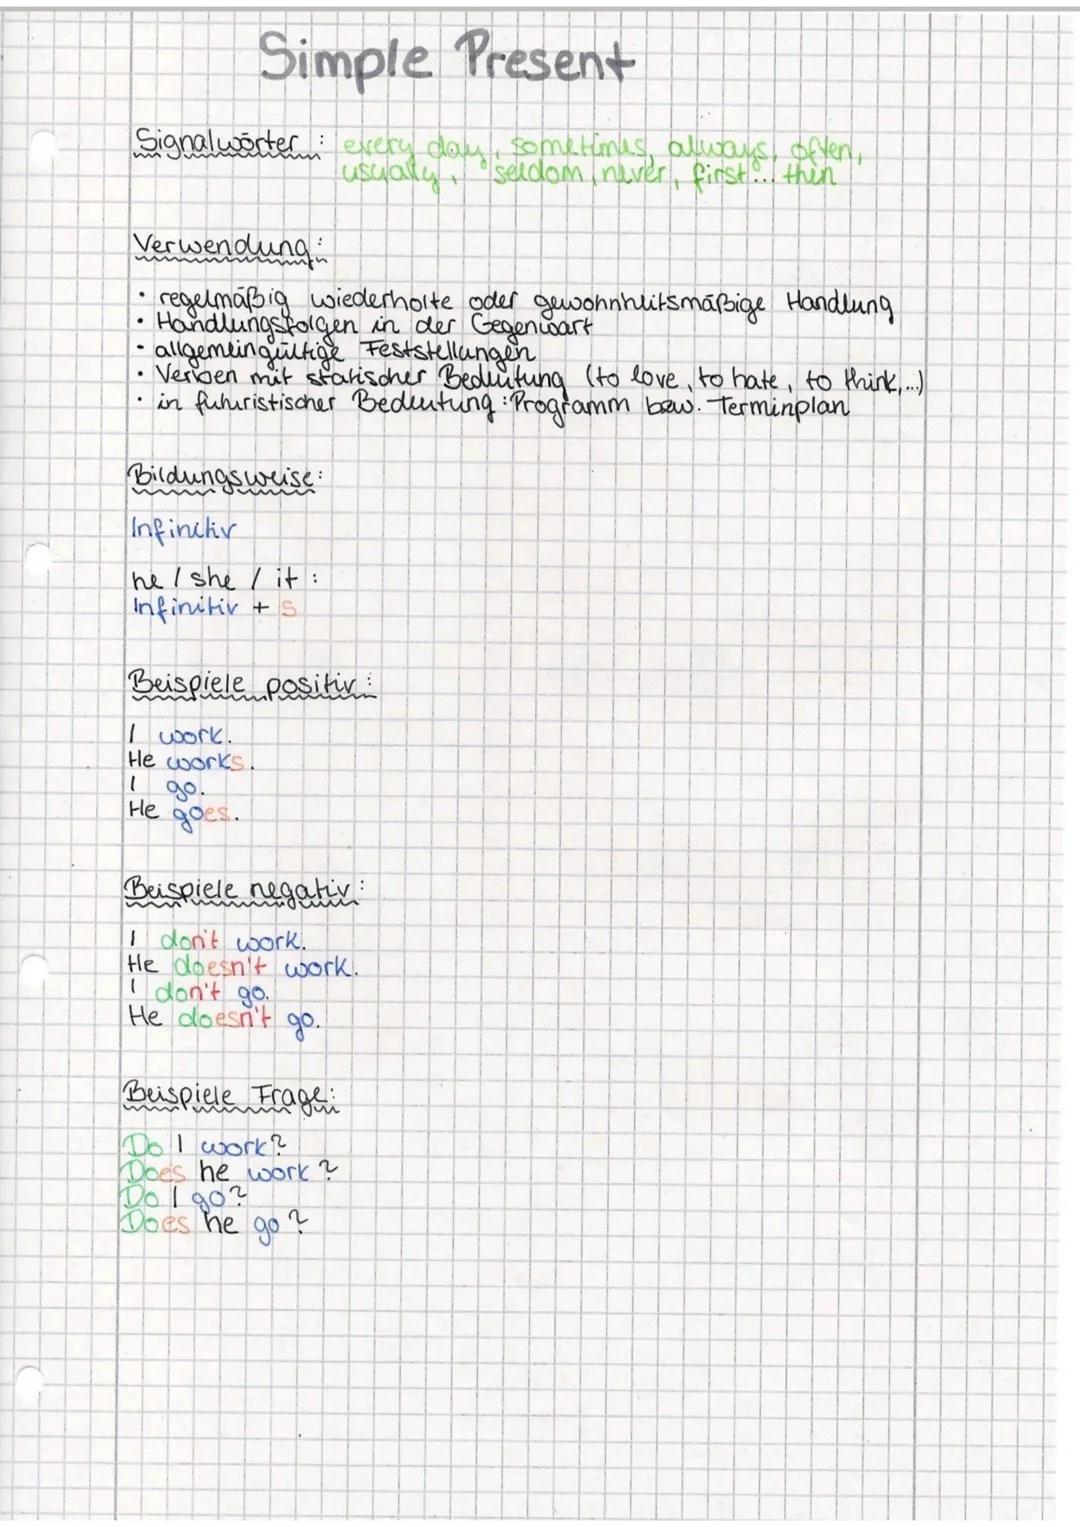 Simple Present
Signalwörter : every day, sometimes, always, often,
usually, seldom, never, first... then
Verwendung:
• regelmäßig wiederholte oder gewohnheitsmäßige Handlung
• Handlungsfolgen in der Gegenwart
• allgemeingültige Feststellungen
• Verben mit statischer Bedeutung (to love, to hate, to think,...)
• in futuristischer Bedeutung: Programm bzw. Terminplan
Bildungsweise:
Infinitiv
he / she / it :
Infinitiv + s
Beispiele positiv:
I work.
He works.
I go.
He goes.
Beispiele negativ:
I don't work.
He doesn't work.
I don't go.
He doesn't go.
Beispiele Frage:
Do I work?
Does he work?
Do I go?
Does he go?